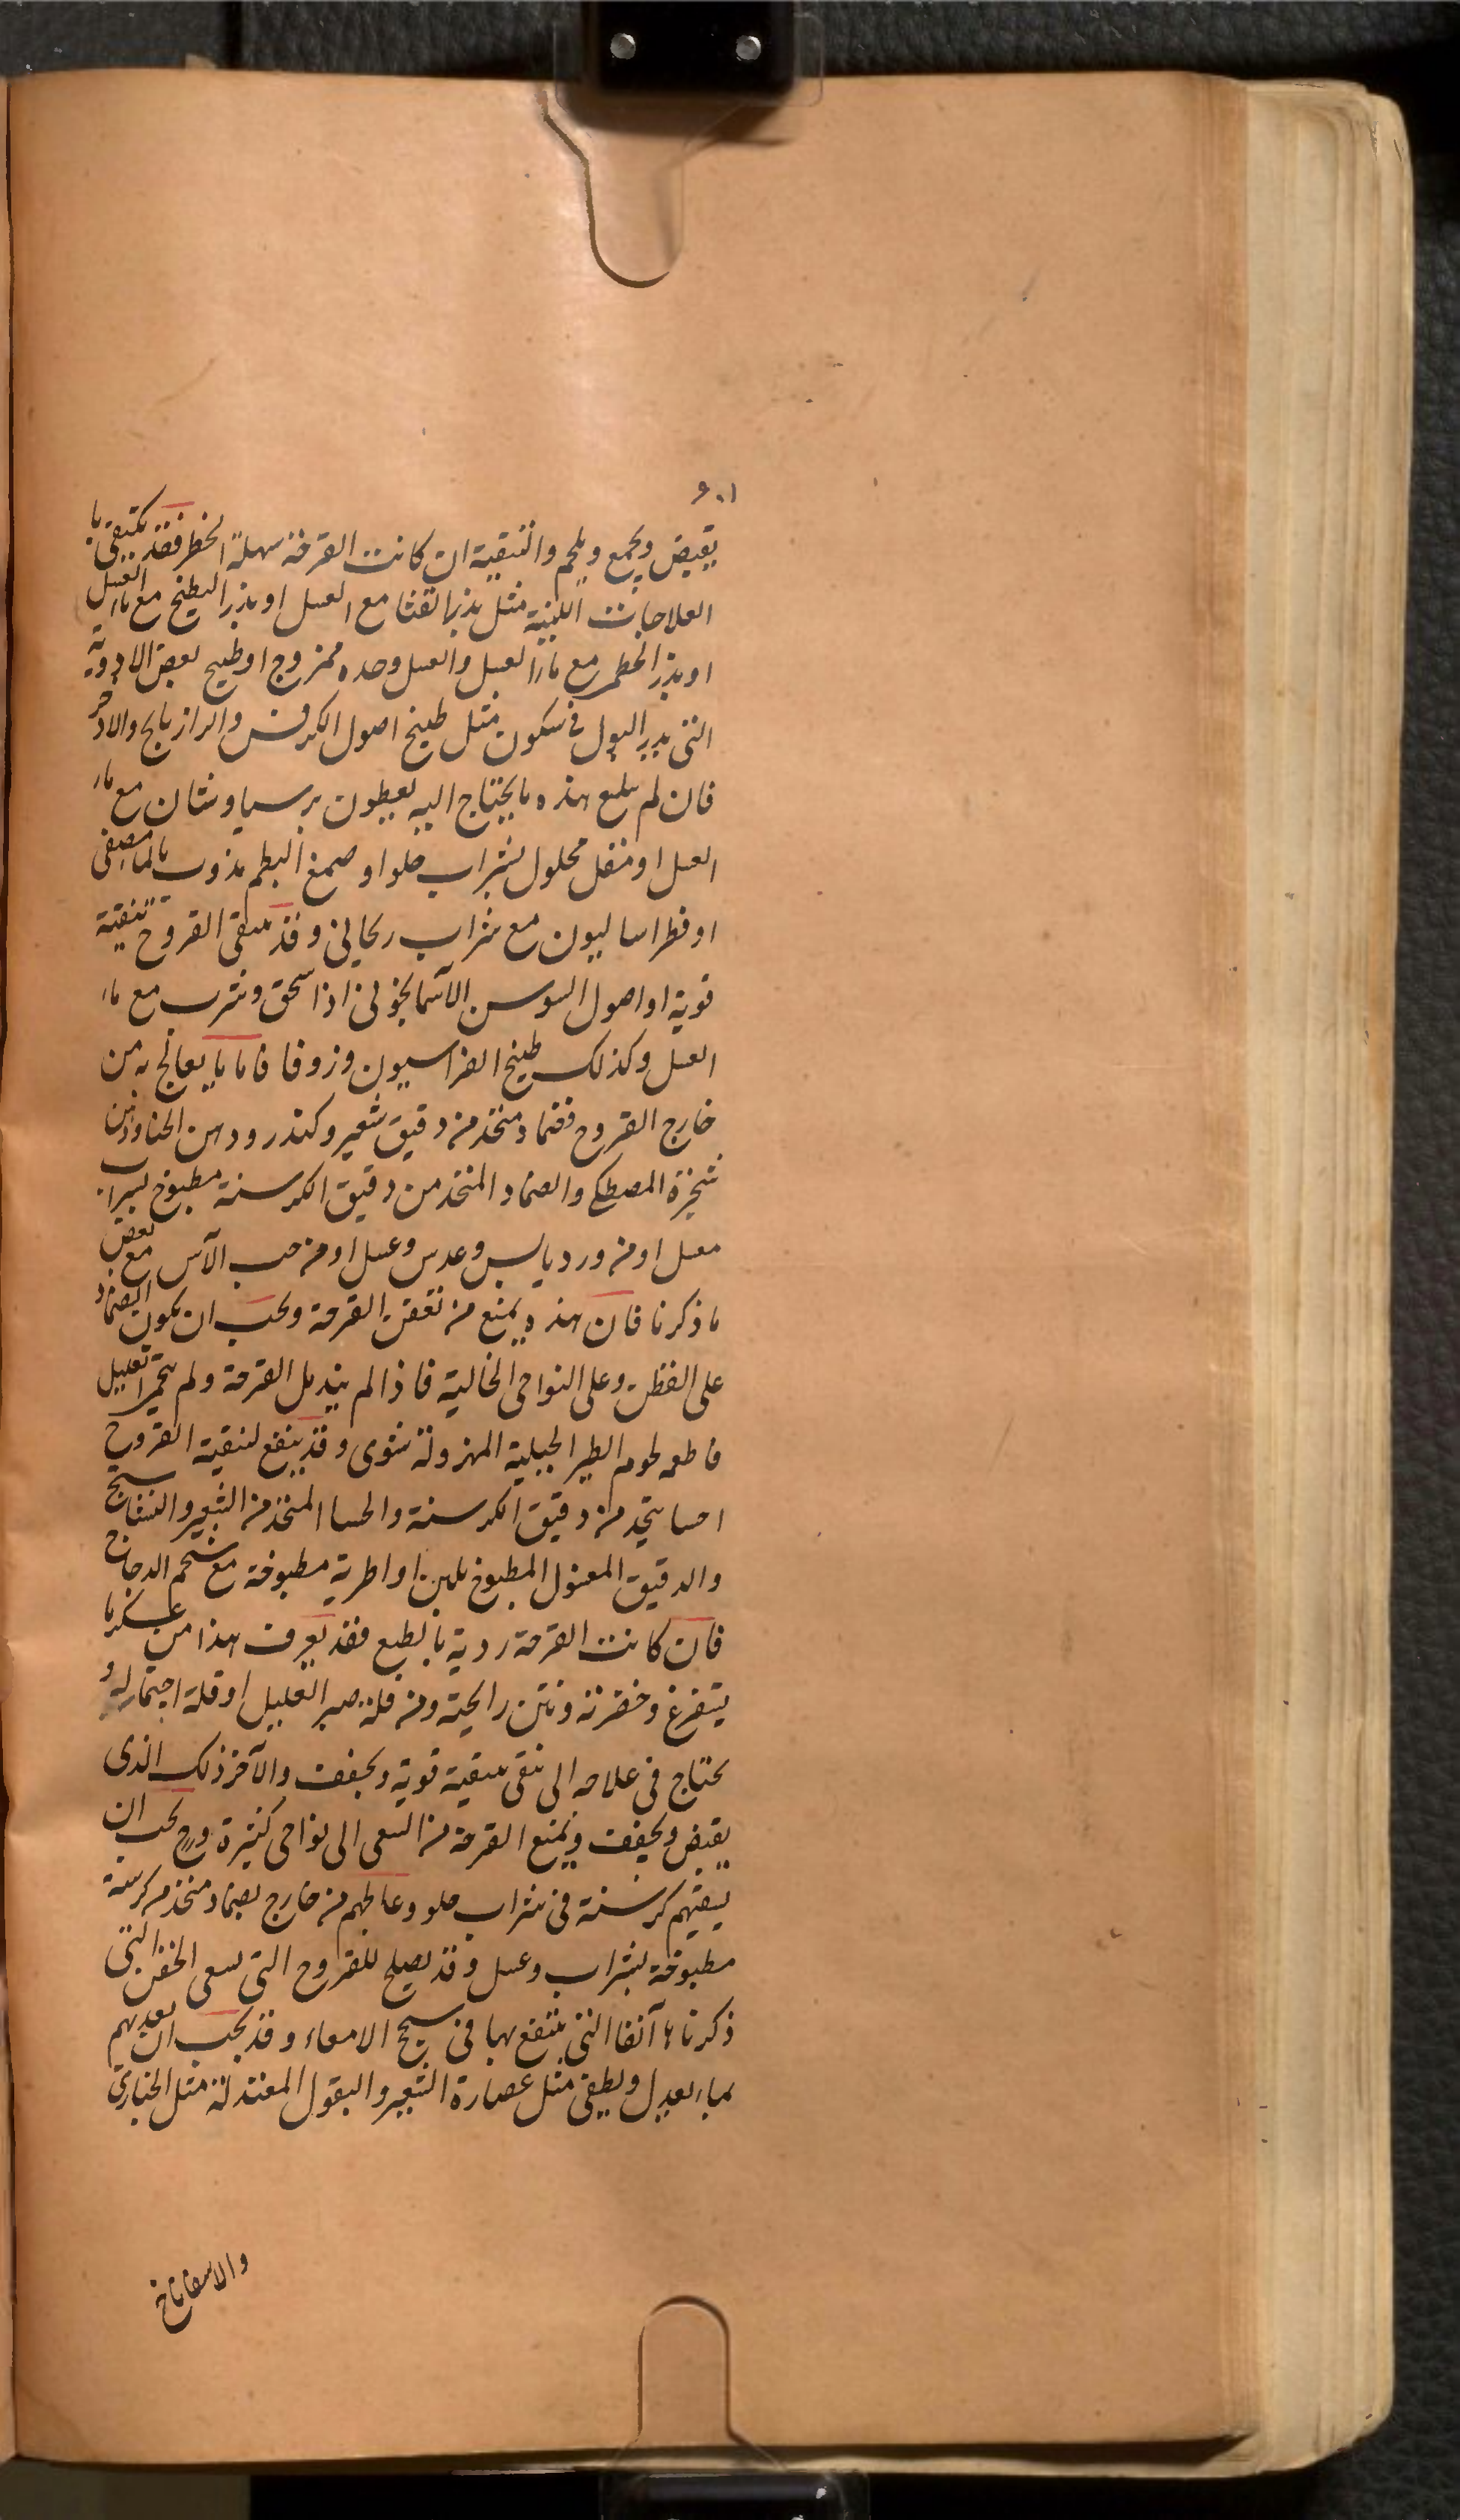 ٦٠١
يقبض ويجمع ويلحم والتنقية ان كانت القرحة سهلة الخطر فقد يكتفى با
العلاجات اللينة مثل بذر القثا مع العسل او بذر البطيخ مع ماء العسل
او بذر الخطمى مع ماء العسل والعسل وحده ممزوج او طبيخ بعض الادوية
التى يدر البول فى سكون مثل طبيخ اصول الكرفس والرازيانج والاذخر
فان لم يبلع هذه ما يحتاج اليه يعطون برسياوشان مع ماء
العسل او مقل محلول بشراب حلو او صمغ البطم مذوب بالماء مصفى
او فطراساليون مع شراب ريحانى وقد ينقى القروح تنقية
قوية او اصول السوسن الآسمانجونى اذا سحق وشرب مع ماء
العسل وكذلك طبيخ الفراسيون وزوفا فاما ما يعالج به من
خارج القروح فضماد متخذ من دقيق شعير وكندر ودهن الحنا ودهن
شجرة المصطكى والضماد المتخذ من دقيق الكرسنة مطبوخ بشراب
معسل او من ورد يابس وعدس وعسل او من حب الآس مع بعض
ما ذكرنا فان هذه يمنع من تعفن القرحة ويجب ان يكون الضماد
على القطن وعلى النواحى الخالية فاذا لم يندمل القرحة ولم يحم العليل
فاطعمه لحوم الطير الجبلية المهزولة شوى وقد ينفع لنقية القروح
احسا يتخذ من دقيق الكرسنة والحسا المتخذ من الشعير والنشاستج
والدقيق المغسول المطبوخ بلبن او اطرية مطبوخة مع شحم الدجاج
فان كانت القرحة ردية بالطبع فقد يعرف هذا من عسكرما
يتفرغ وخضرته ونتن رايحته ومن قلة صبر العليل او قلة احتماله و
يحتاج فى علاجه الى نقى بتنقية قوية ويجفف والآخر ذلك الذى
يقبض ويجفف ويمنع القرحة من السعى الى نواحى كثيرة وح يجب ان
يسقيهم كرسنة فى شراب حلو وعالجهم من خارج بضماد متخذ من كرسنة
مطبوخة بشراب وعسل وقد يصلح للقروح التى تسعى الحقن التى
ذكرناها آنفا التى ينتفع بها فى سحج الامعاء وقد يجب ان يعديهم
بما يعدل ويطفى مثل عصارة الشعير والبقول المعتدلة مثل الخبازى
والاسفاناخ